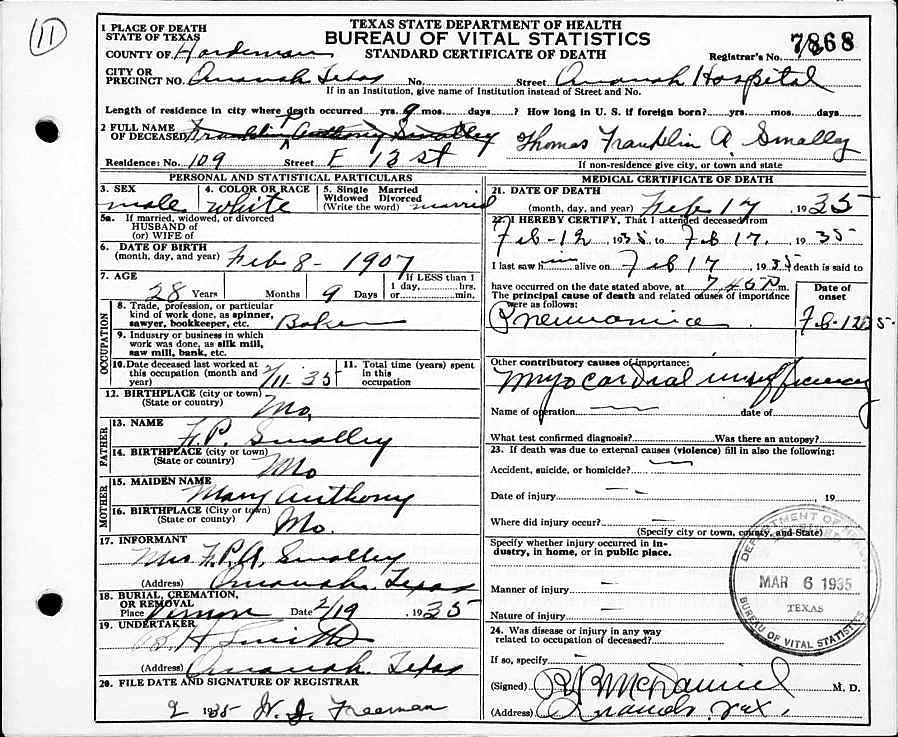 11
TEXAS STATE DEPARTMENT OF HEALTH
BUREAU OF VITAL STATISTICS
STANDARD CERTIFICATE OF DEATH
1 PLACE OF DEATH
STATE OF TEXAS
COUNTY OF Hardeman
Registrar's No. 7868
CITY OR
PRECINCT NO. Quanah Texas No. Street Quanah Hospital
If in an Institution, give name of Institution instead of Street and No.
Length of residence in city where death occurred yrs. 9 mos. days ? How long in U. S. if foreign born? yrs. mos. days
2 FULL NAME
OF DECEASED Franklin Anthony Smalley Thomas Franklin A. Smalley
Residence: No. 109 Street E 13 st
If non-residence give city, or town and state
PERSONAL AND STATISTICAL PARTICULARS
3. SEX
male
4. COLOR OR RACE
White
5. Single Married
Widowed Divorced
(Write the word) married
5a. If married, widowed, or divorced
HUSBAND of
(or) WIFE of
6. DATE OF BIRTH
(month, day, and year) Feb 8 - 1907
7. AGE
28 Years Months 9 Days
If LESS than 1
1 day, hrs.
or min.
OCCUPATION
8. Trade, profession, or particular
kind of work done, as spinner,
sawyer, bookkeeper, etc. Baker
9. Industry or business in which
work was done, as silk mill,
saw mill, bank, etc.
10. Date deceased last worked at
this occupation (month and
year) 2/11 35
11. Total time (years) spent
in this
occupation
12. BIRTHPLACE (city or town)
(State or country) Mo.
FATHER
13. NAME
F. P. Smalley
14. BIRTHPLACE (city or town)
(State or country) Mo
MOTHER
15. MAIDEN NAME
Mary Anthony
16. BIRTHPLACE (City or town)
(State or country) Mo.
17. INFORMANT
Mrs F. P. A. Smalley
(Address) Quanah Texas
18. BURIAL, CREMATION,
OR REMOVAL
Place Vernon Date 2/19, 1935
19. UNDERTAKER
H Smith
(Address) Quanah Texas
20. FILE DATE AND SIGNATURE OF REGISTRAR
2 1935 W. J. Freeman
MEDICAL CERTIFICATE OF DEATH
21. DATE OF DEATH
(month, day, and year) Feb 17, 1935
22. I HEREBY CERTIFY, That I attended deceased from
Feb-12, 1935 to Feb 17, 1935
I last saw him alive on Feb 17, 1935 death is said to
have occurred on the date stated above, at 7.45 P m.
The principal cause of death and related causes of importance
were as follows:
Date of
onset
Pneumonia Feb-12 35
Other contributory causes of importance:
Myocardial insufficiency
Name of operation date of
What test confirmed diagnosis? Was there an autopsy?
23. If death was due to external causes (violence) fill in also the following:
Accident, suicide, or homicide?
Date of injury, 19
Where did injury occur?
(Specify city or town, county, and State)
Specify whether injury occurred in in-
dustry, in home, or in public place.
Manner of injury
Nature of injury
24. Was disease or injury in any way
related to occupation of deceased?
If so, specify
(Signed) McDaniel M. D.
(Address) Quanah, Tex.
DEPARTMENT OF HEALTH
MAR 6 1935
TEXAS
BUREAU OF VITAL STATISTICS